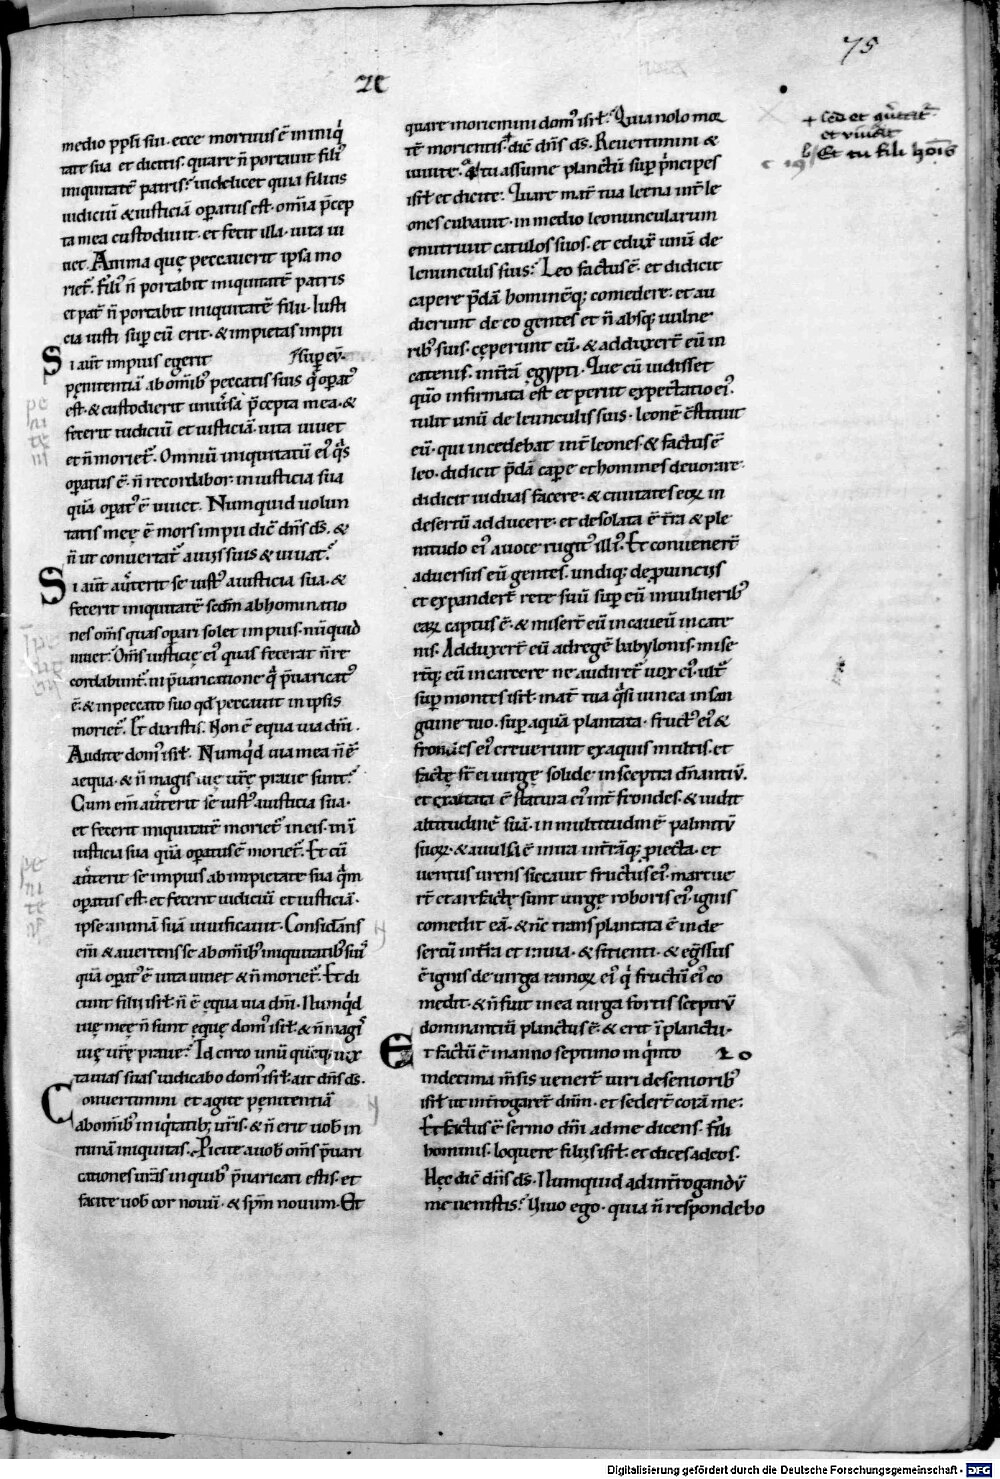 75
medio pp̄li sui· ecce mortuus ē in iniq̇
tate sua et dicitis· quare n̄ portauit fili᷒
iniquitatē patris? uidelicet quia filius
iudiciū & iusticiā op̄atus est· om̄ia p̄cep
ta mea custodiuit· et fecit illa· uita ui
uet· Anima quę peccauerit ipsa mo
riet᷑· fili᷒ n̄ portabit iniquitatē patris
et pat᷑ n̄ portabit iniquitatē filii· Iusti
cia iusti sup̄ eū erit· & impietas impii
Si aut̄ impius egerit sup̄ eū·
pęnitentiā ab om̄ib᷒ peccatis suis q̇ op̄at᷒
est· & custodierit uniu͛sa p̄cepta mea· &
fecerit iudiciū et iusticiā· uita uiuet
et n̄ moriet᷑· Omniū iniquitatū ei᷒ q̇s
op̄atus ē· n̄ recordabor· in iusticia sua
quā op̄at᷒ ē uiuet· Numquid uolun
tatis meę ē mors impii dic̄ dn̄s ds̄· &
n̄ ut conuertat᷑ a uiis suis & uiuat?
Si aut̄ au͛terit se iust᷒ a iusticia sua· &
fecerit iniquitatē scdm̄ abhominatio
nes om̄s quas op̄ari solet impius· nūquid
uiuet? Om̄s iusticię ei᷒ quas fecerat n̄ re
cordabunt᷑· in p̄uaricatione q̇ p̄uaricat᷒
ē· & in peccato suo qd̄ peccauit in ipsis
moriet᷑· Et dixistis· Non ē equa uia dn̄i·
Audite dom᷒ isrl̄· Numq̇d uia mea n̄ ē
aequa· & n̄ magis uię ur̄ę praue sunt?
Cum em̄ au͛terit se iust᷒ a iusticia sua·
et fecerit iniquitatē moriet᷑ in eis· in ī
iusticia sua quā op̄atus ē moriet᷑· Et cū
au͛terit se impius ab impietate sua q̇m
op̄atus est· et fecerit iudiciū et iusticiā·
ipse animā suā uiuificauit· Considans
em̄ & auertens se ab om̄ib᷒ iniquitatib᷒ suis
quā op̄at᷒ ē uita uiuet & n̄ moriet᷑· Et di
cunt filii isrl̄· n̄ ē ęqua uia dn̄i· Numq̇d
uię meę n̄ sunt ęquę dom᷒ isrl̄· & n̄ magis
uię ur̄ę praue? Id circo unū quēq; iux
ta uias suas iudicabo dom᷒ isrl̄· ait dn̄s ds̄·
Conuertimini et agite pęnitentiā
ab om̄ib᷒ iniq̇tatib; ur̄is· & n̄ erit uob̄ in
ruinā iniquitas· Picite a uob̄ om̄s p̄uari
cationes ur̄as in quib᷒ p̄uaricati estis· et
facite uob̄ cor nouū· & sp̄m nouum· Et
quare moriemini dom᷒ isrl̄? Quia nolo mor
tē morientis· dic̄ dn̄s ds̄· Reuertimini &
uiuite· & tu assume planctū sup̄ ṗncipes
isrl̄ et dicite· Quare mat᷑ tua leena int᷑ le
ones cubauit· in medio leonuncularum
enutriuit catulos suos· et edux̄ unū de
leunculis suis? Leo factus ē· et didicit
capere p̄dā hominēq; comedere· et au
dierunt de eo gentes et n̄ absq; uulne
rib᷒ suis· cęperunt eū· & adduxer̄t eū in
catenis· in t᷑rā egypti· Que cū uidisset
quō infirmata est et periit expectatio ei᷒·
tulit unū de leunculis suis· leonē c̄stituit
eū· qui incedebat int᷑ leones· & factus ē
leo· didicit p̄dā cap̄e et homines deuorare·
didicit uiduas facere· & ciuitates eoꝝ in
desertū adducere· et desolata ē t᷑ra & ple
nitudo ei᷒ a uoce rugit᷒ illi᷒· Et conuener̄t
aduersus eū gentes· undiq; de ꝓuinciis
et expander̄t rete suū sup̄ eū in uulnerib᷒
eaꝝ captus ē· & miser̄t eū in caueū in cate
nis· Adduxer̄t eū ad regē babylonis· mise
r̄tq; eū in carcere ne audiret᷑ uox ei᷒ ult᷑
sup̄ montes isrl̄· mat᷑ tua q̇si uinea in san
guine tuo· sup̄ aquā plantata· fruct᷒ ei᷒ &
frondes ei᷒ creuerunt ex aquis multis· et
factę st̄ ei uirgę solide in sceptra dn̄antiū·
et exaltata ē statura ei᷒ int᷑ frondes· & uidit
altitudinē suā· in multitudinē palmitū
suoꝝ· & auulsa ē in ira in t᷑rāq; ꝓiecta· et
uentus urens siccauit fructus ei᷒· marcue
r̄t et arefactę sunt uirgę roboris ei᷒· ignis
comedit eā· & nc̄ transplantata ē in de
sertū in t᷑ra et inuia· & sitienti· & eg̃ssus
ē ignis de uirga ramoꝝ ei᷒ q̇ fructū ei᷒ co
medit· & n̄ fuit in ea uirga fortis sceptrū
dominantiū planctus ē· & erit ī planctū·
Et factū ē in anno septimo in q̇nto 20
in decima m̄sis uener̄t uiri de seniorib᷒
isrl̄ ut int᷑rogaret᷑ dn̄m· et seder̄t corā me·
Et factus ē sermo dn̄i ad me dicens· fili
hominis· loquere filiis isrl̄· et dices ad eos·
Hęc dic̄ dn̄s ds̄· Numquid ad int᷑rogandū
me uenistis? Viuo ego· quia n̄ respondebo
+ sed et au͛tit᷑
et uiuit
Et tu fili hoīs
Digitalisierung gefördert durch die Deutsche Forschungsgemeinschaft - DFG